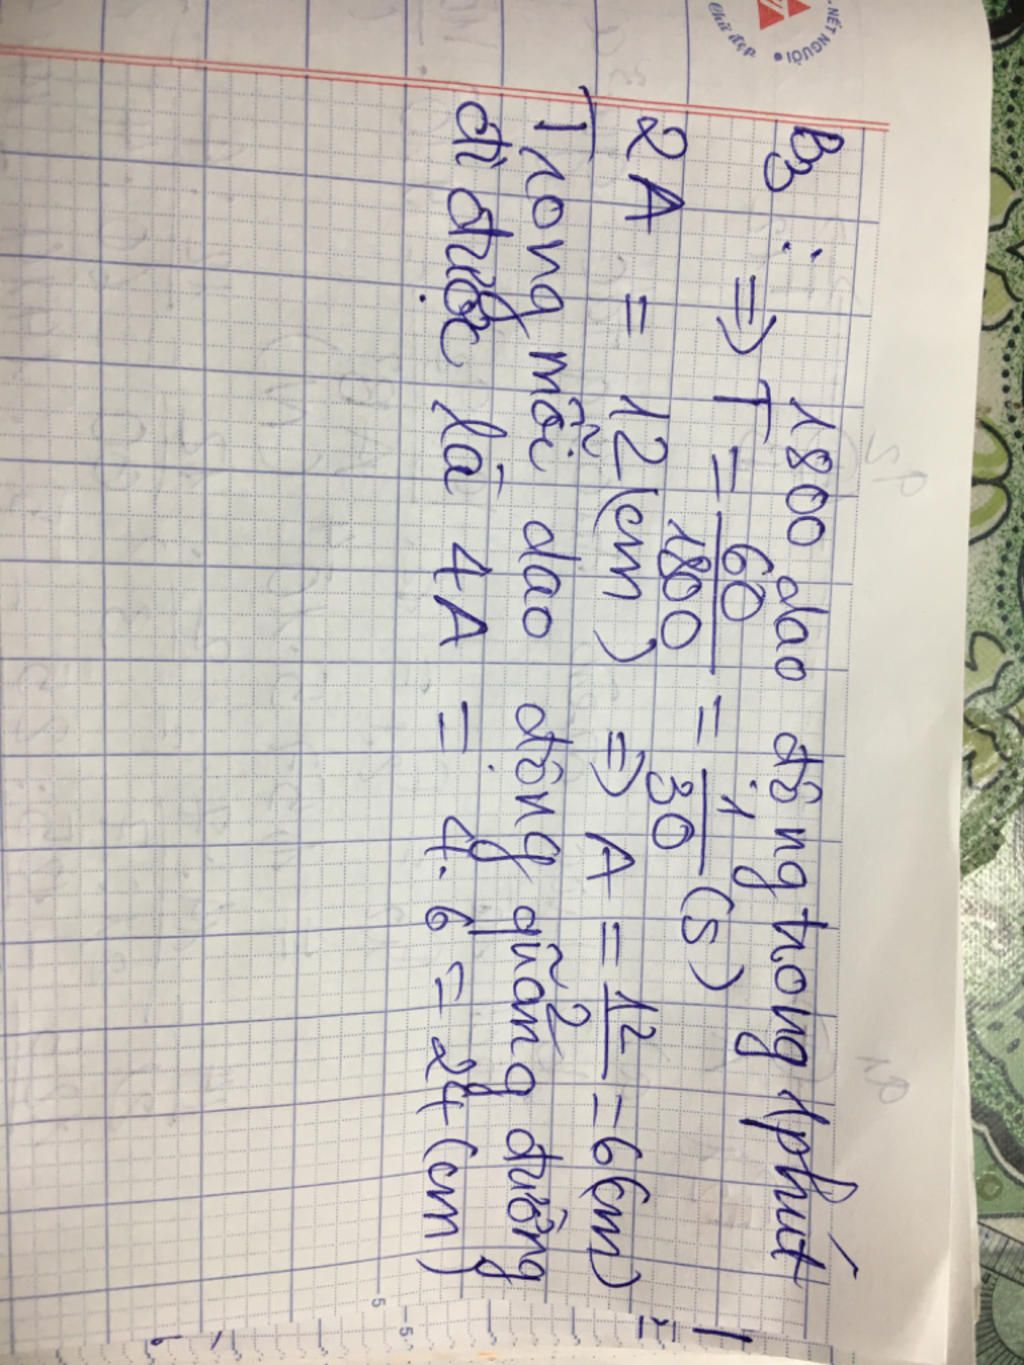 NÉT NGƯỜI
Chữ đẹp
B3: 1800 dao động trong 1 phút
=> T = 60/1800 = 1/30 (s)
2A = 12 (cm) => A = 12/2 = 6 (cm)
Trong mỗi dao động quãng đường
đi được là 4A = 4.6 = 24 (cm)